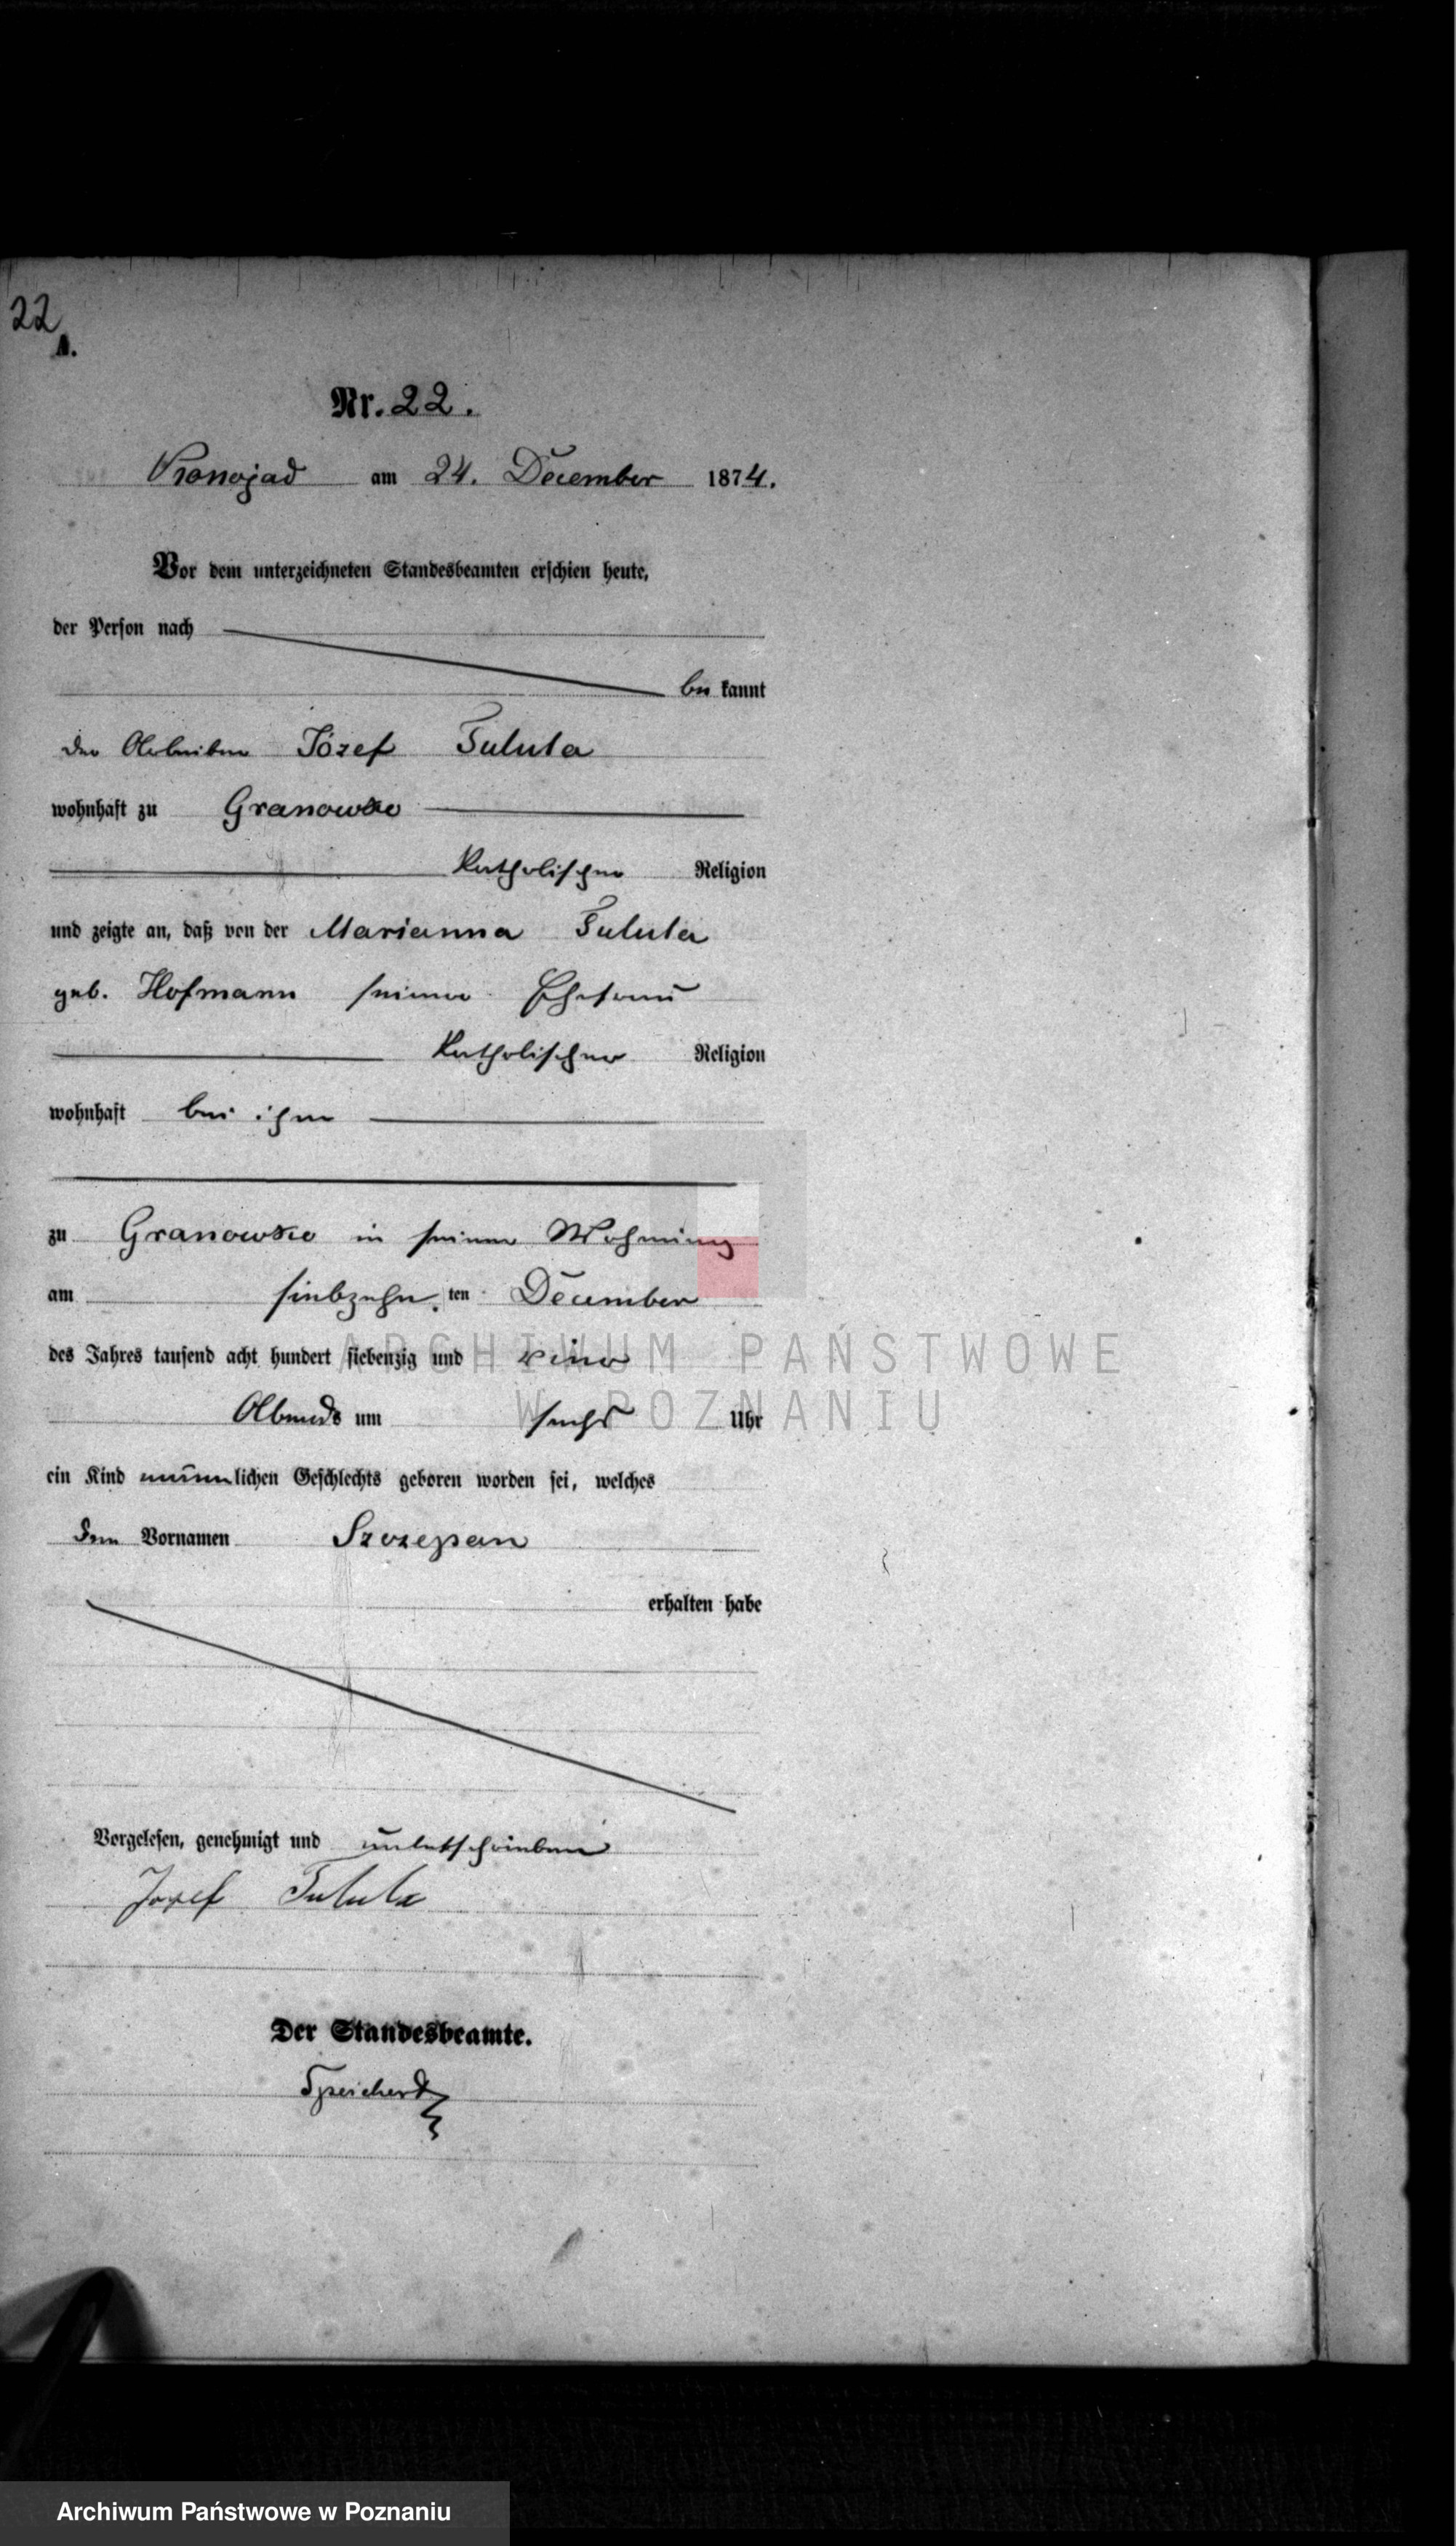 22
A.
Nr. 22.
Konojad am 24. December 1874.
Vor dem unterzeichneten Standesbeamten erschien heute,
der Person nach
be kannt
der Arbeiter Józef Tulula
wohnhaft zu Granowko
katholischer Religion
und zeigte an, daß von der Marianna Tulula
geb. Hofmann seiner Ehefrau
katholischer Religion
wohnhaft bei ihm
zu Granowko in seiner Wohnung
am siebzehn ten December
des Jahres tausend acht hundert siebenzig und vier
Abends um sechs Uhr
ein Kind männlichen Geschlechts geboren worden sei, welches
den Vornamen Szczepan
erhalten habe
Vorgelesen, genehmigt und unterschrieben
Jozef Tulula
Der Standesbeamte.
Speichert
ARCHIWUM PAŃSTWOWE
W POZNANIU
Archiwum Państwowe w Poznaniu